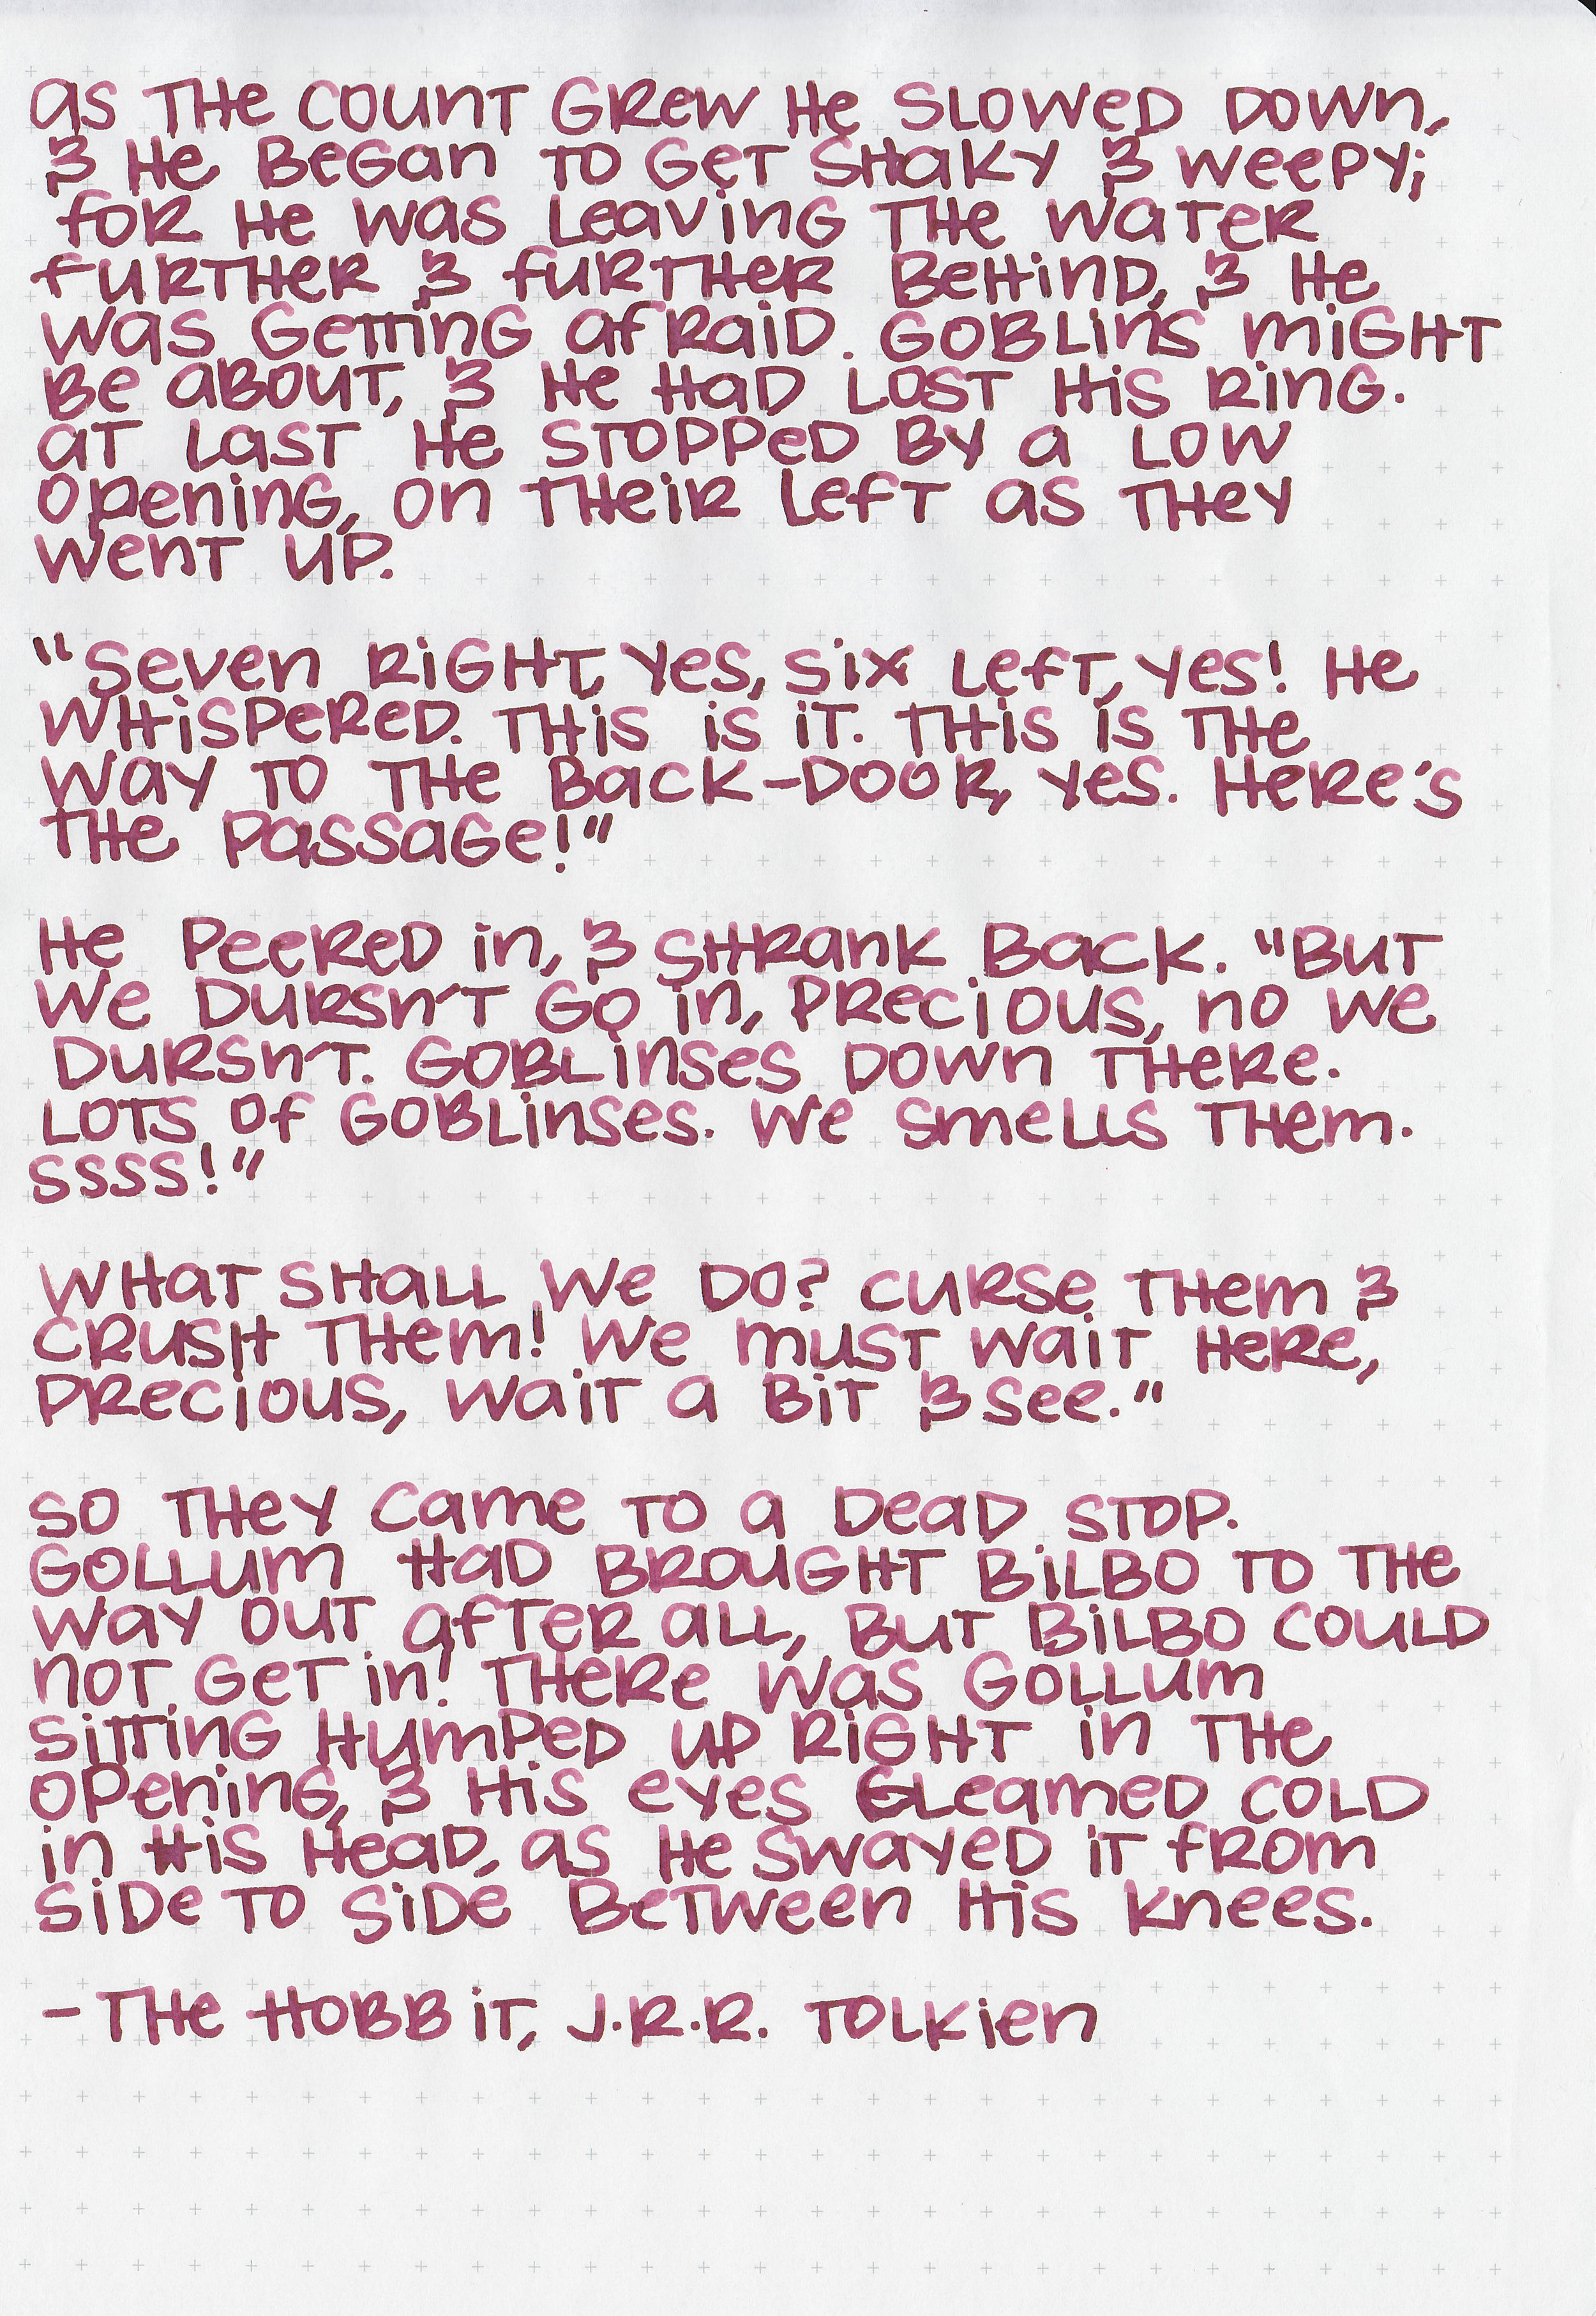 as the count grew he slowed down,
& he began to get shaky & weepy;
for he was leaving the water
further & further behind, & he
was getting afraid. Goblins might
be about, & he had lost his ring.
at last he stopped by a low
opening, on their left as they
went up.
"Seven right, yes, six left, yes! He
whispered. This is it. This is the
way to the back-door, yes. Here's
the passage!"
He peered in, & shrank back. "But
we dursn't go in, precious, no we
dursn't. Goblinses down there.
Lots of goblinses. We smells them.
Ssss!"
What shall we do? Curse them &
crush them! We must wait here,
precious, wait a bit & see."
So they came to a dead stop.
Gollum had brought Bilbo to the
way out after all, but Bilbo could
not get in! There was Gollum
sitting humped up right in the
opening, & his eyes gleamed cold
in his head, as he swayed it from
side to side between his knees.
- The Hobbit, J.R.R. Tolkien